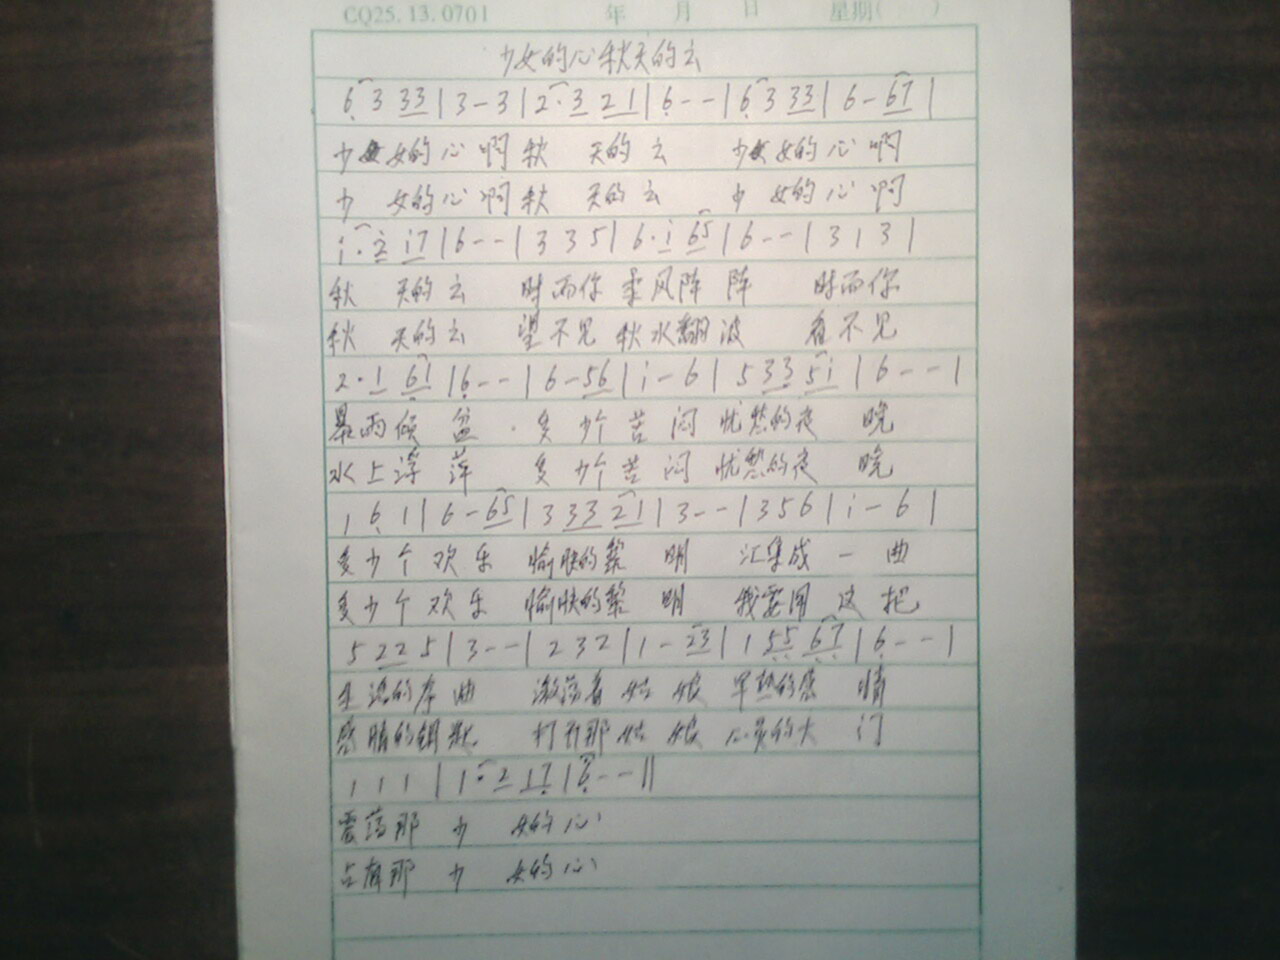 CQ25.13.0701 年 月 日 星期( )
少女的心秋天的云
6 3 33 | 3 - 3 | 2 · 3 21 | 6 - - | 6 3 33 | 6 - 67 |
少女的心啊秋 天的云 少女的心啊
少 女的心啊秋 天的云 少 女的心啊
i · 2 i7 | 6 - - | 3 3 5 | 6 · i 65 | 6 - - | 3 1 3 |
秋 天的云 时而你柔风阵 阵 时而你
秋 天的云 望不见秋水翻波 看不见
2 · 1 61 | 6 - - | 6 - 56 | i - 6 | 5 33 5i | 6 - - |
暴雨倾 盆 · 多少个苦 闷 忧愁的夜 晚
水上浮 萍 多少个苦 闷 忧愁的夜 晚
1 6 1 | 6 - 65 | 3 33 21 | 3 - - | 3 5 6 | i - 6 |
多少个欢乐 愉快的黎 明 汇集成一 曲
多少个欢乐 愉快的黎 明 我要用这 把
5 22 5 | 3 - - | 2 3 2 | 1 - 23 | 1 55 67 | 6 - - |
的序曲 激荡着姑 娘 早熟的感 情
感情的钥匙 打开那姑 娘 心灵的大 门
1 1 1 | 1 · 2 17 | 6 - - ||
震荡那 少 女的心
占有那 少 女的心